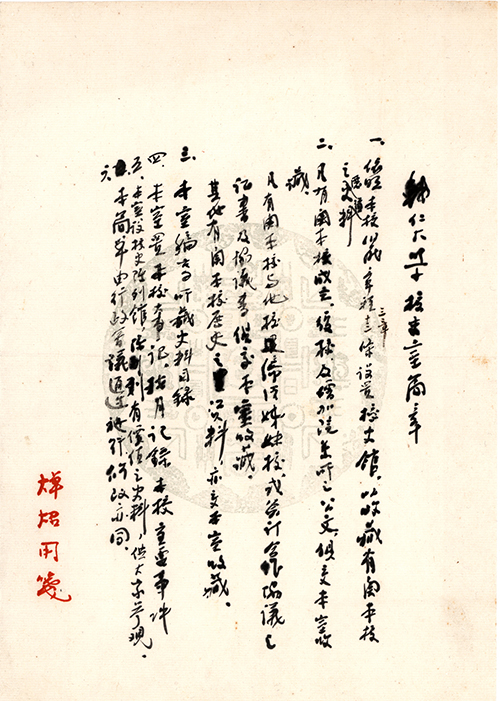 輔仁大學校史室簡章
一、依照本校組織章程三章 條設置校史館,以收藏有關本校
之史料
二、凡有關本校成立、復校及增加院系所之公文,俱交本室收
藏。
凡有關本校與他校締結姊妹校,或簽訂合作協議之
證書及協議書俱交本室收藏。
其他有關本校歷史之資料亦交本室收藏。
三、本室編寫所藏史料目錄
四、本室置本校大事記,按月記錄本校重要事件
五、本室設校史陳列館,陳列有價值之史料,供大家參觀。
六、本簡章由行政會議通過施行,修改亦同。
焯炤用箋